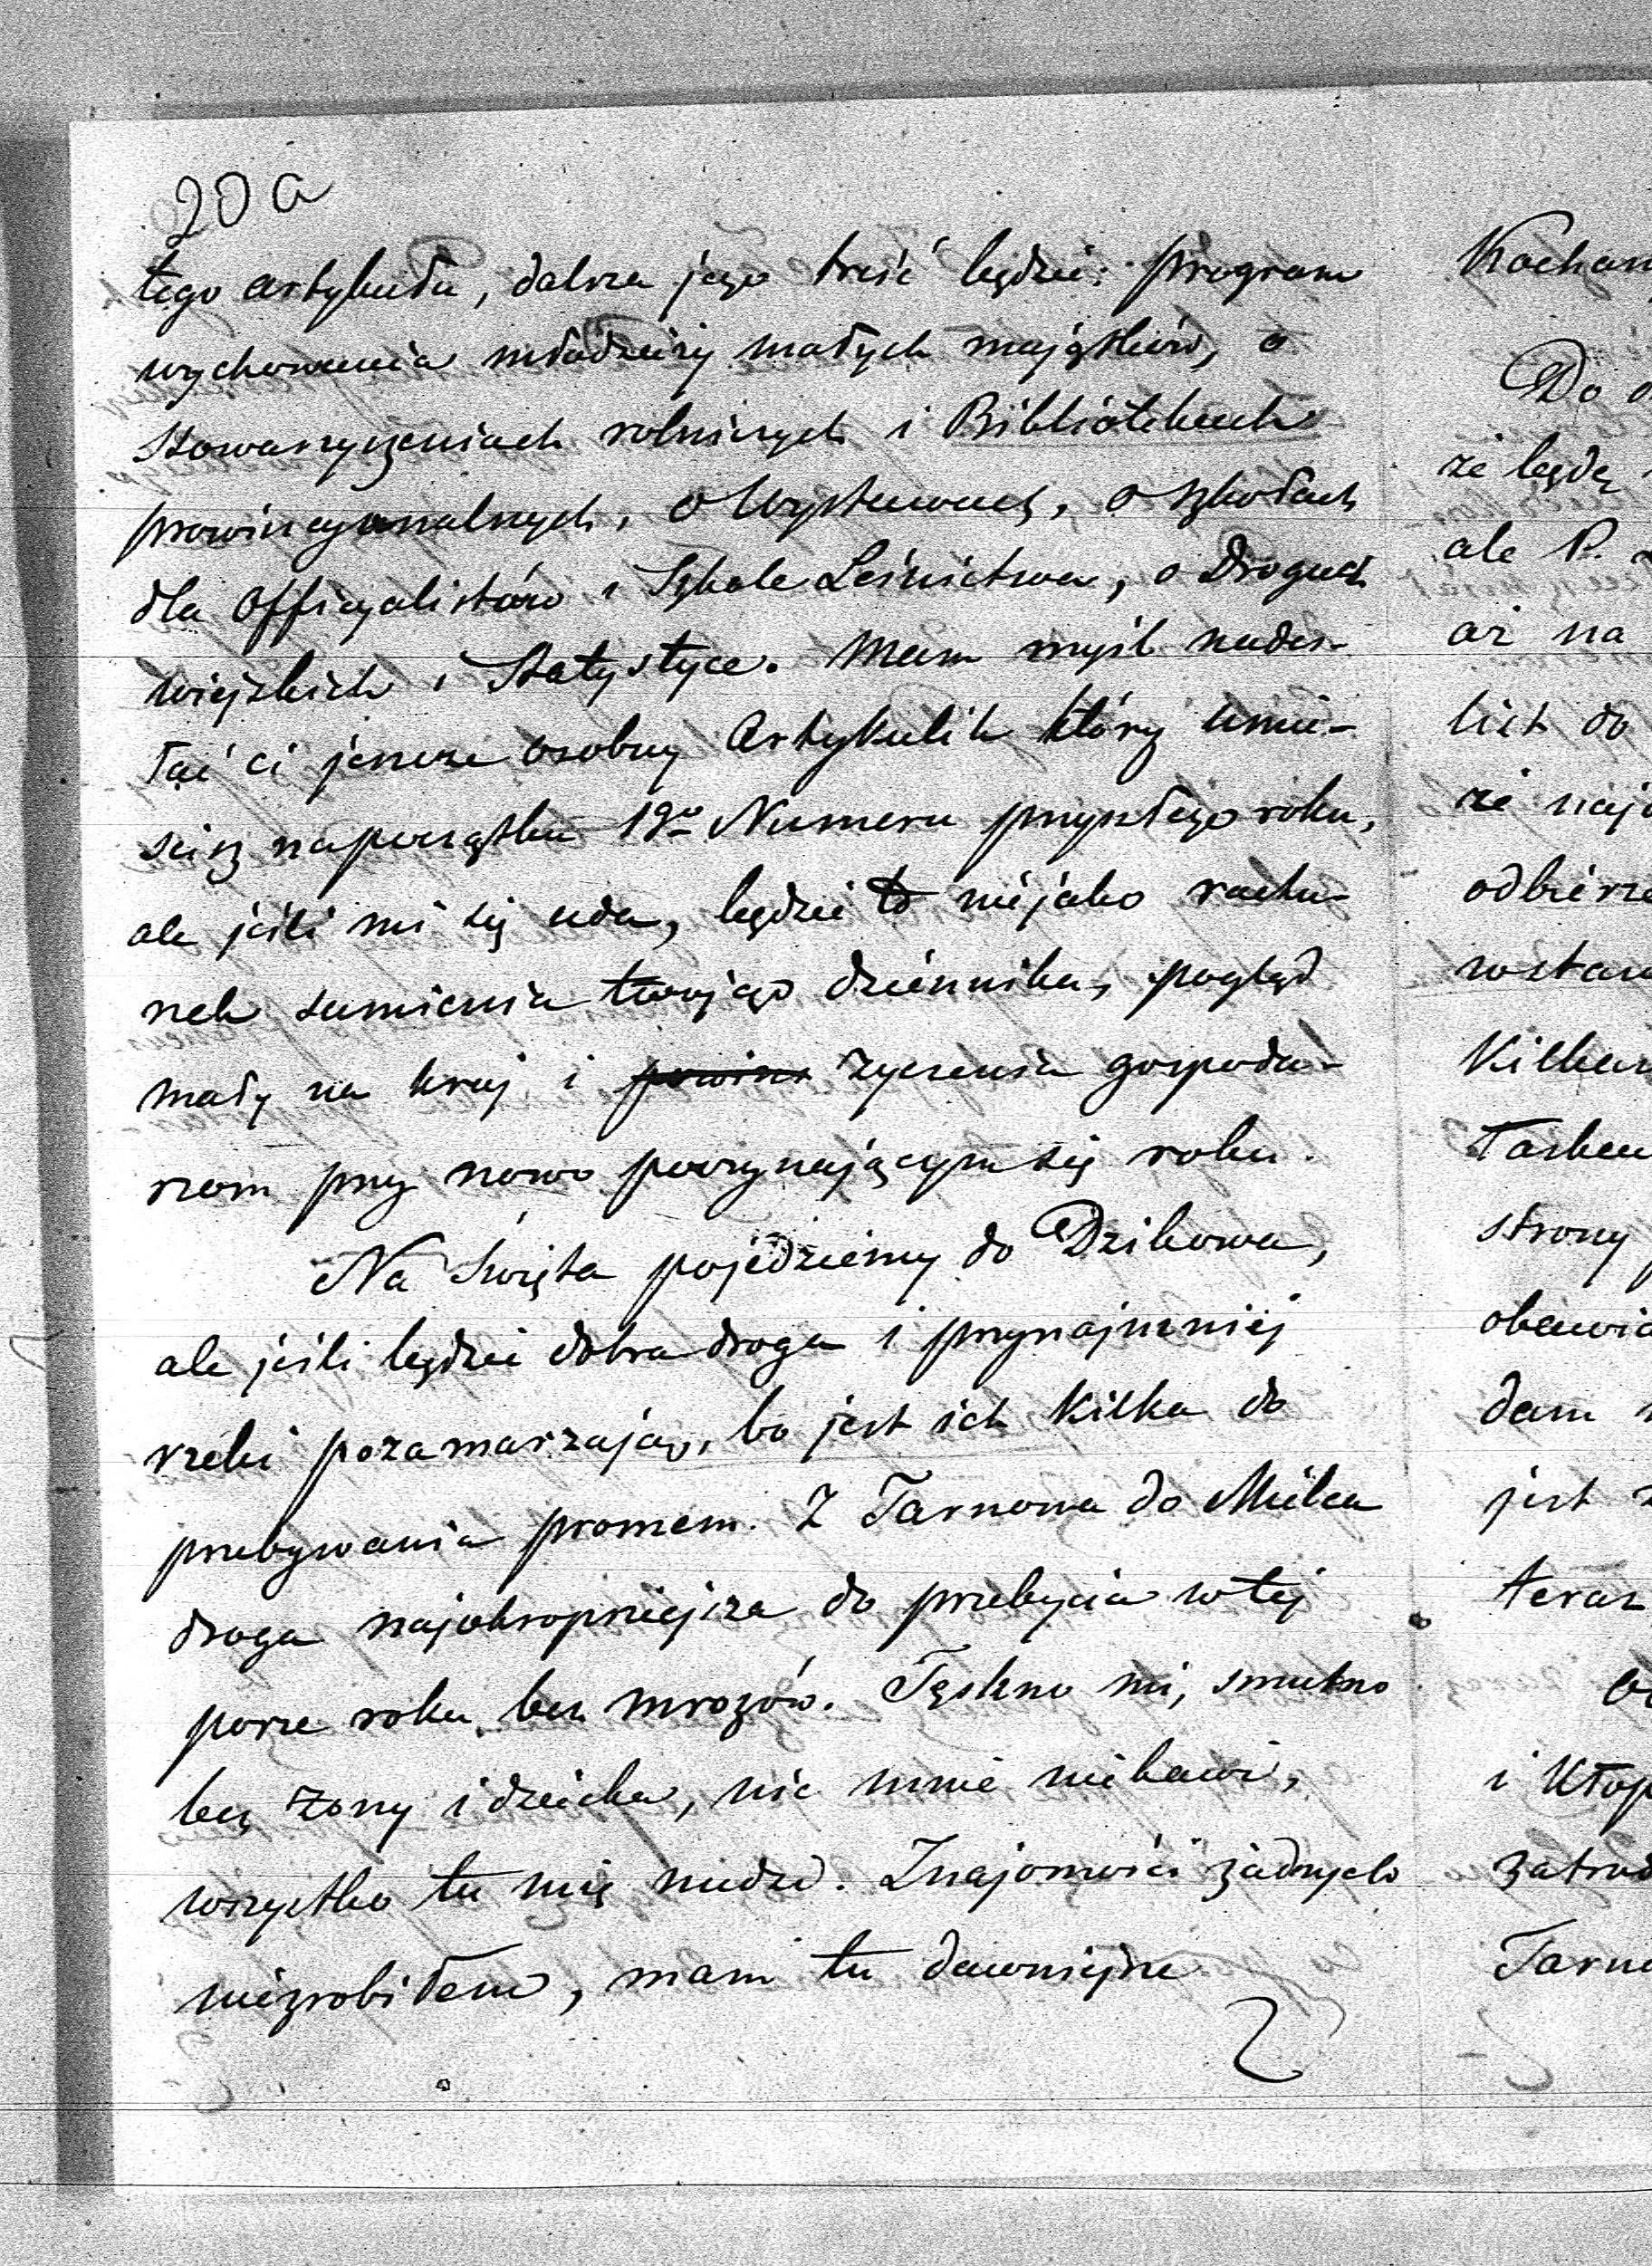 20 a
tego artykułu, dalsza jego treść będzie: program
wychowania młodzieży małych majątków, o
stowarzyszeniach rolniczych i Bibliotekach
prowincyonalnych, o Wystawach, o szkołach
dla Officyalistów i Szkole Leśnictwa, o Drogach
wiejskich i Statystyce. Mam myśl nades-
łać ci jeszcze osobny Artykulik który umie-
ścisz napoczątku 19º Numeru przyszłego roku,
ale jeśli mi się uda, będzie to niejako rachu-
nek sumienia twojego dziennika, pogląd
mały na kraj i życzenia gospoda-
rzom przy nowo poczynającym się roku.
Na Święta pojedziemy do Dzikowa,
ale jeśli będzie dobra droga i przynajmniej
rzeki pozamarzają, bo jest ich kilka do
przebywania promem. Z Tarnowa do Mielca
droga najokropniejsza do przebycia w tej
porze roku bez mrozów. Tęskno mi, smutno
bez żony i dziecka, nic mnie niebawi,
wszystko tu mię nudzi. Znajomości żadnych
niezrobiłem, mam tu dawniejsze
Kochan
Do
że będę
ale P.
aż na
list do
że naj
odbierze
wstaw
Kilka
strony
obawia
dam
jest
teraz
i Kłop
zatrud
Tarn